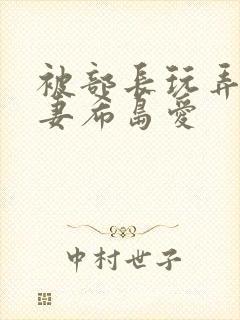 被部長玩弄
妻希島愛
中村世子